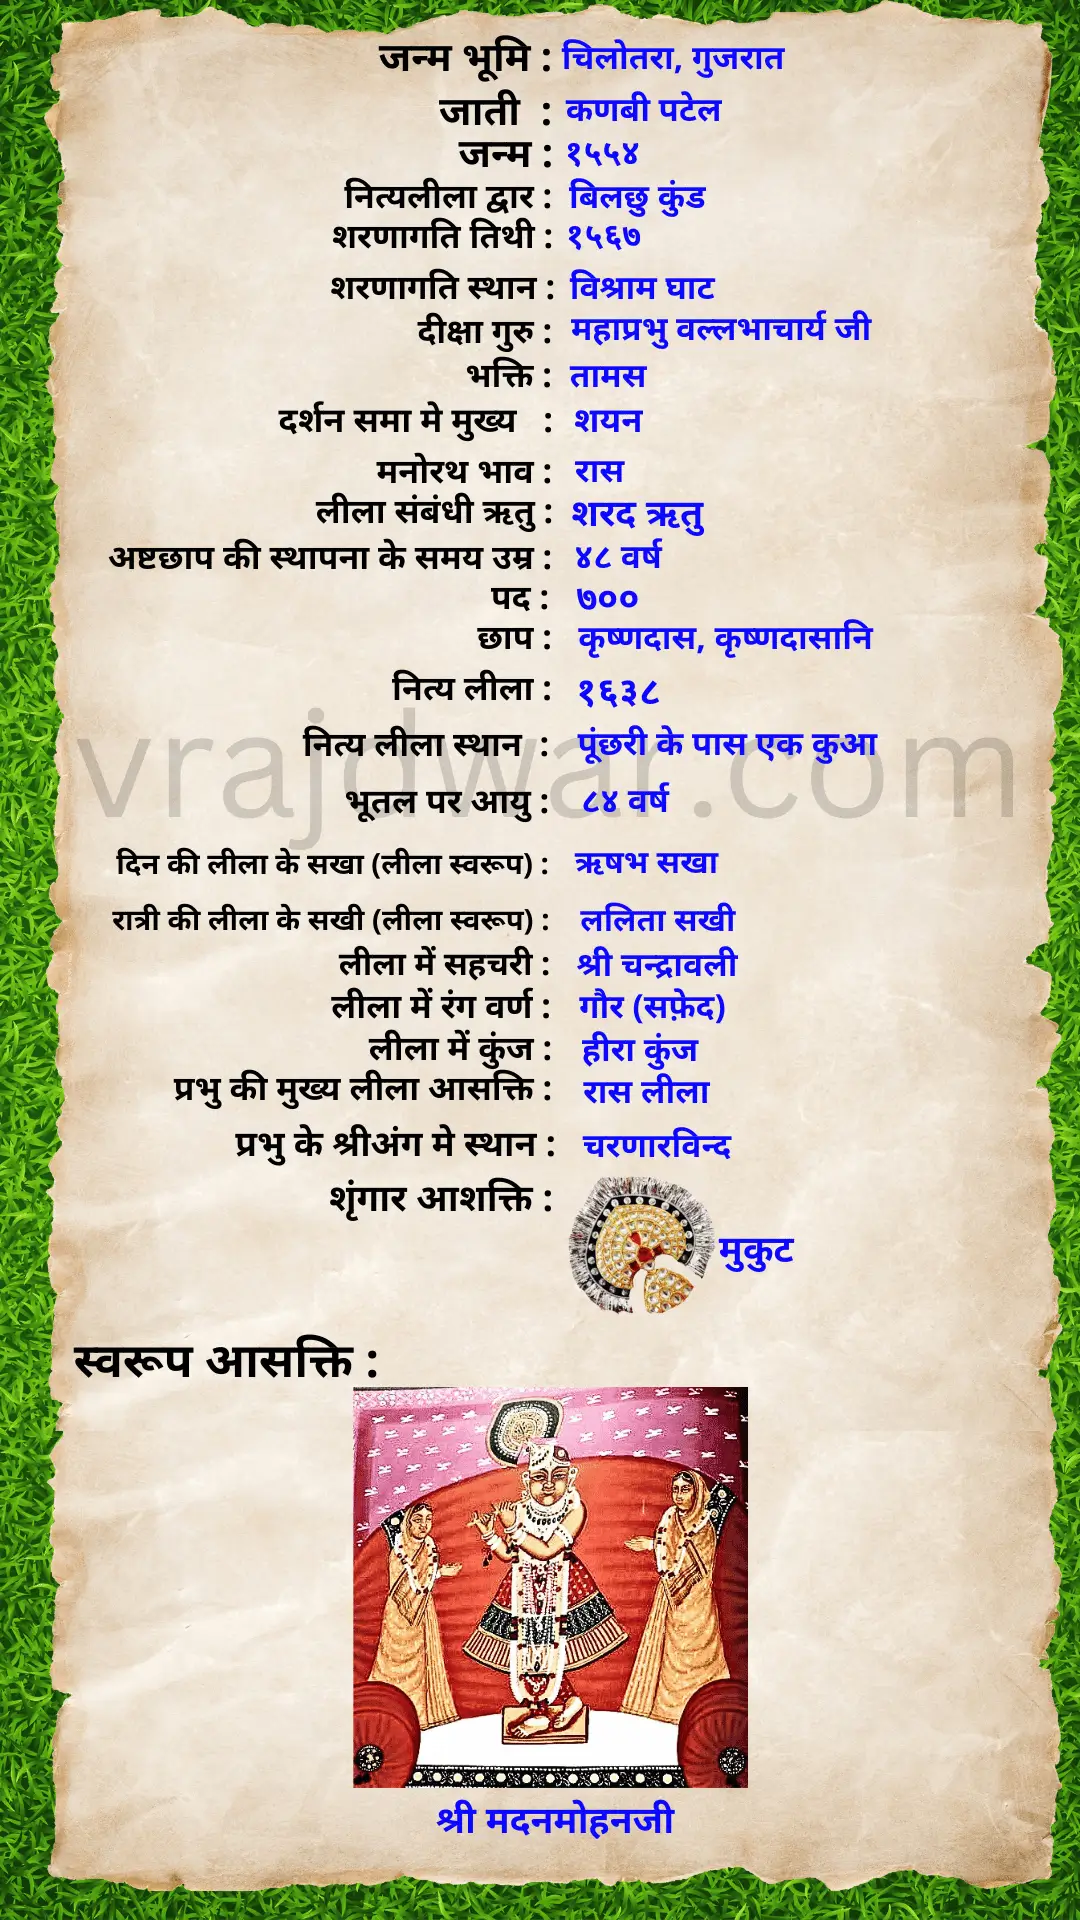 जन्म भूमि : चिलोतरा, गुजरात
जाती : कणबी पटेल
जन्म : १५५४
नित्यलीला द्वार : बिलछु कुंड
शरणागति तिथी : १५६७
शरणागति स्थान : विश्राम घाट
दीक्षा गुरु : महाप्रभु वल्लभाचार्य जी
भक्ति : तामस
दर्शन समा मे मुख्य : शयन
मनोरथ भाव : रास
लीला संबंधी ऋतु : शरद ऋतु
अष्टछाप की स्थापना के समय उम्र : ४८ वर्ष
पद : ७००
छाप : कृष्णदास, कृष्णदासानि
नित्य लीला : १६३८
नित्य लीला स्थान : पूंछरी के पास एक कुआ
vrajdwar.com
भूतल पर आयु : ८४ वर्ष
दिन की लीला के सखा (लीला स्वरूप) : ऋषभ सखा
रात्री की लीला के सखी (लीला स्वरूप) : ललिता सखी
लीला में सहचरी : श्री चन्द्रावली
लीला में रंग वर्ण : गौर (सफ़ेद)
लीला में कुंज : हीरा कुंज
प्रभु की मुख्य लीला आसक्ति : रास लीला
प्रभु के श्रीअंग मे स्थान : चरणारविन्द
शृंगार आशक्ति :
मुकुट
स्वरूप आसक्ति :
श्री मदनमोहनजी